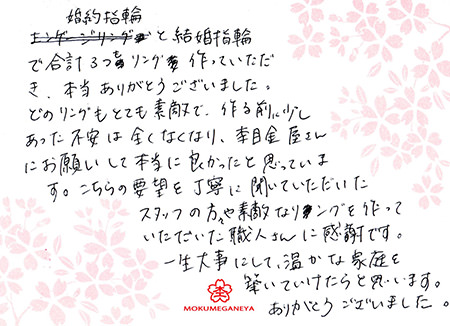 婚約指輪
エンゲージリングと結婚指輪
で合計3つもリングを作っていただ
き、本当ありがとうございました。
どのリングもとても素敵で、作る前に少し
あった不安は全くなくなり、杢目金屋さん
にお願いして本当に良かったと思っていま
す。こちらの要望を丁寧に聞いていただいた
スタッフの方々や素敵なリングを作って
いただいた職人さんに感謝です。
一生大事にして、温かな家庭を
築いていけたらと思います。
ありがとうございました。
MOKUMEGANEYA